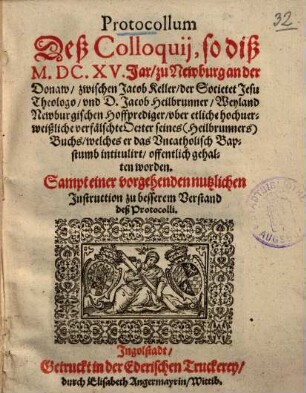 32
Protocollum
Deß Colloquij, so diß
M. DC. XV. Jar/ zu Newburg an der
Donaw/ zwischen Jacob Keller/ der Societet Jesu
Theologo/ vnd D. Jacob Heilbrunner/ Weyland
Newburgischen Hoffprediger/ vber etliche hochuer-
weißliche verfälschte Texter seines (Heilbrunners)
Buchs/ welches er das Vncatholisch Bap-
stumb intitulirt/ offentlich gehal-
ten worden.
Sampt einer vorgehenden nutzlichen
Instruction zu besserem Verstand
deß Protocolli.
Ingolstadt/
Getruckt in der Ederischen Truckerey/
durch Elisabeth Angermayrin/ Wittib.